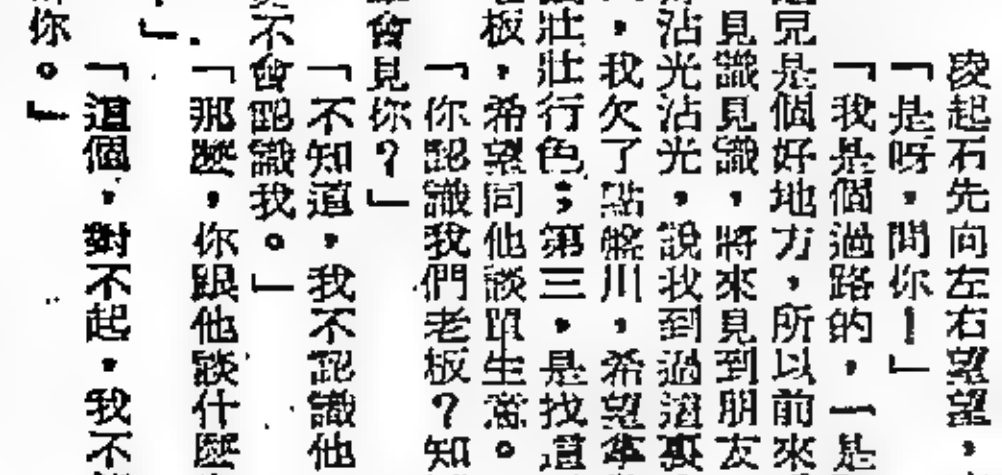 凌起石先向左右望望，
「是呀，問你！」
「我是個過路的，一是
見是個好地方，所以前來
見識見識，將來見到朋友
沾光沾光，說我到過這裏
，我欠了點盤川，希望
壯壯行色；第三，是找這
板，希望同他談單生意。
「你認識我們老板？知
會見你？」
「不知道，我不認識他
不會認識我。」
「那麼，你跟他談什麼
」
「這個，對不起，我不
你。」